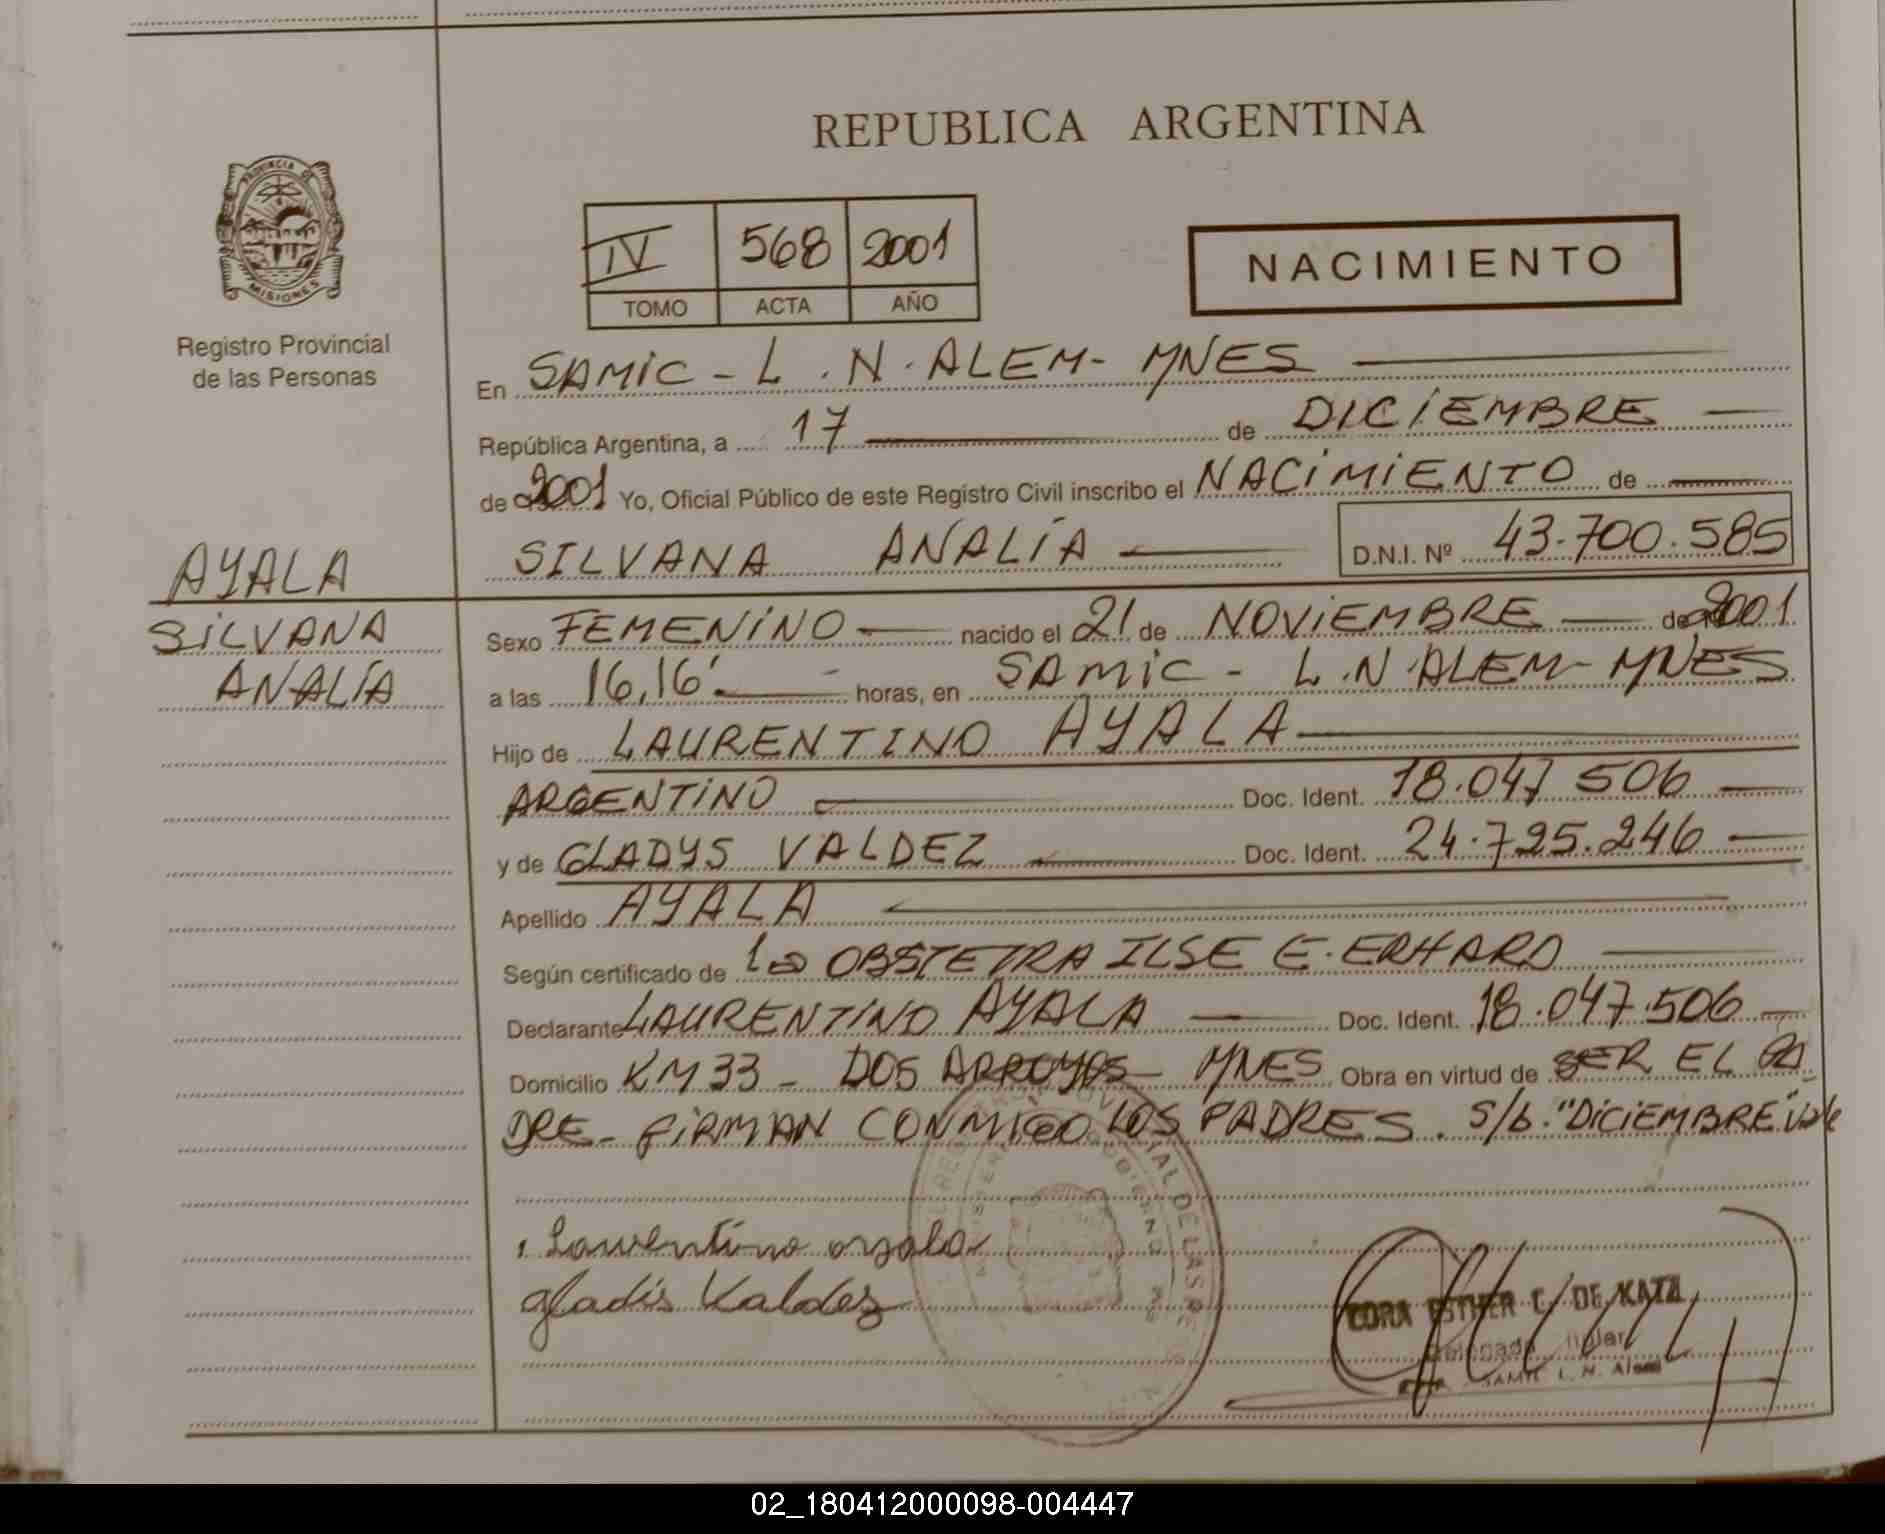 REPUBLICA ARGENTINA
PROVINCIA DE
MISIONES
Registro Provincial
de las Personas
IV 568 2001
TOMO ACTA AÑO
NACIMIENTO
En SAMIC - L . N . ALEM - MNES
República Argentina, a 17 de DICIEMBRE
de 2001 Yo, Oficial Público de este Registro Civil inscribo el NACIMIENTO de
SILVANA ANALÍA D.N.I. Nº 43.700.585
AYALA
SILVANA
ANALÍA
Sexo FEMENINO nacido el 21 de NOVIEMBRE de 2001
a las 16,16' horas, en SAMIC - L . N . ALEM - MNES
Hijo de LAURENTINO AYALA
ARGENTINO Doc. Ident. 18.047 506
y de GLADYS VALDEZ Doc. Ident. 24.725.246
Apellido AYALA
Según certificado de OBSTETRA ILSE E. ERHARD
Declarante LAURENTINO AYALA Doc. Ident. 18.047.506
Domicilio KM 33 - DOS ARROYOS - MNES Obra en virtud de SER EL PA
DRE - FIRMAN CONMIGO LOS PADRES. S/b. "DICIEMBRE" Vale
Laurentino ayala
gladis Valdez
CORA ESTHER C. DE KATZ
Titular
SAMIC L. N. Alem
02_180412000098-004447